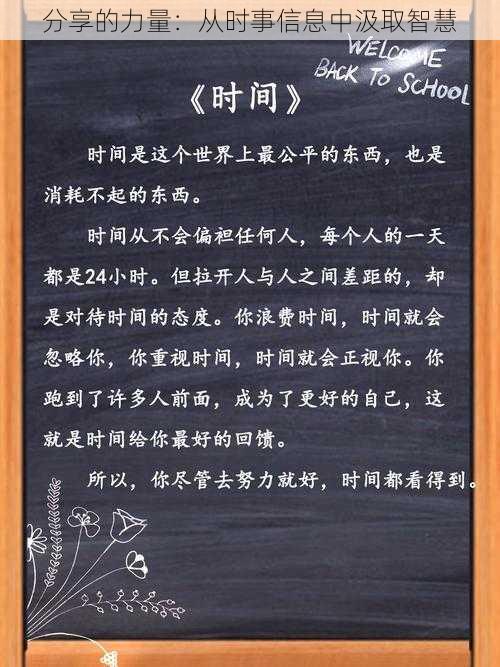 分享的力量：从时事信息中汲取智慧
WELCOME
BACK TO SCHOOL
《时间》
时间是这个世界上最公平的东西，也是
消耗不起的东西。
时间从不会偏袒任何人，每个人的一天
都是24小时。但拉开人与人之间差距的，却
是对待时间的态度。你浪费时间，时间就会
忽略你，你重视时间，时间就会正视你。你
跑到了许多人前面，成为了更好的自己，这
就是时间给你最好的回馈。
所以，你尽管去努力就好，时间都看得到。